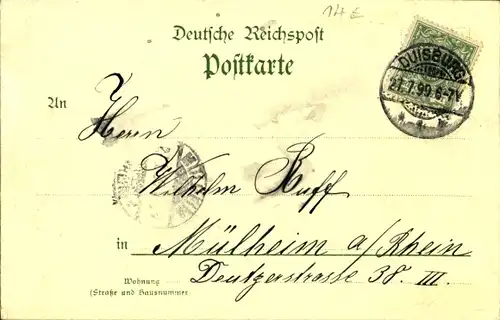 14 E
Deutsche Reichspost
Postkarte
DUISBURG
27.7.99.6-7N.
An
Herrn
Wilhelm Ruff
in Mülheim a/Rhein
Wohnung
(Straße und Hausnummer
Deutzerstrasse 38. III.